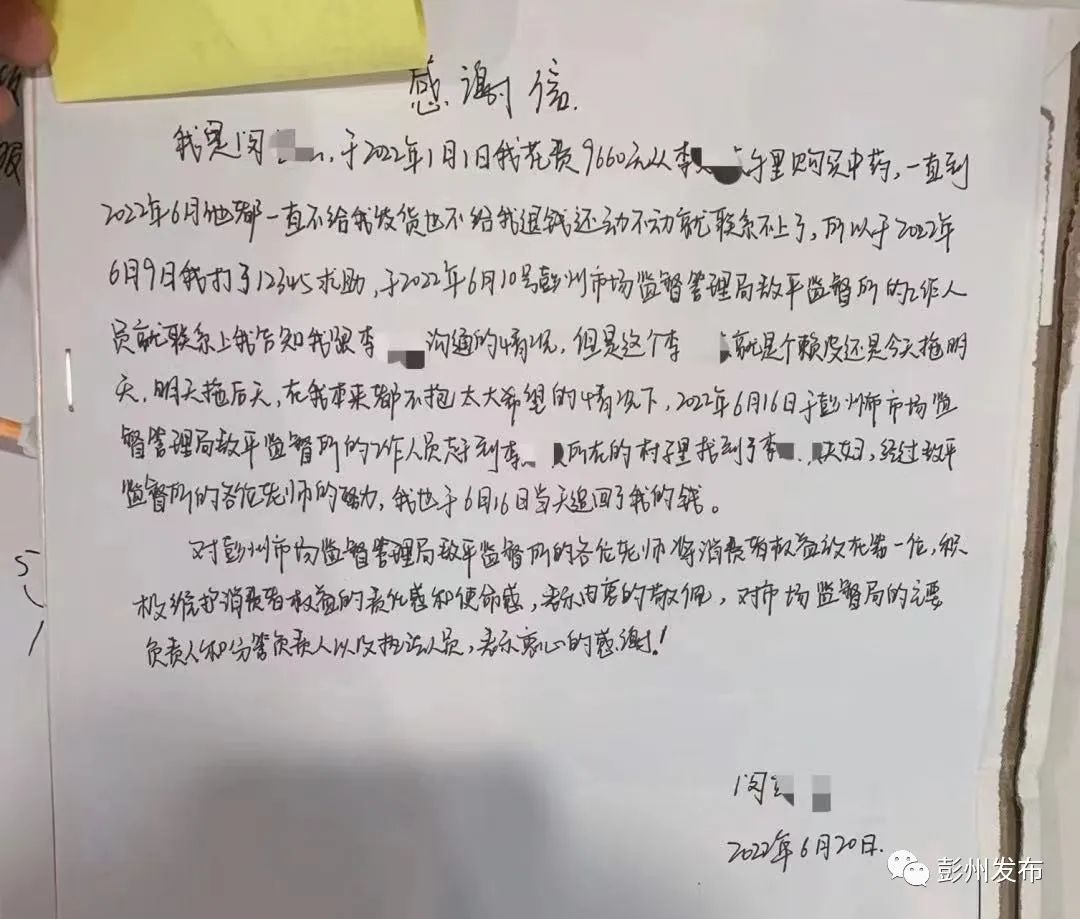 感谢信.
我是闵，于2022年1月1日我花费9660元从李手里购买中药，一直到
2022年6月他都一直不给我发货也不给我退钱还动不动就联系不上了，所以于2022年
6月9日我打了12345求助，于2022年6月10号彭州市场监督管理局敖平监督所的工作人
员就联系上我告知我跟李沟通的情况，但是这个李就是个赖皮还是今天拖明
天，明天拖后天，在我本来都不抱太大希望的情况下，2022年6月16日于彭州市市场监
督管理局敖平监督所的工作人员到李所在的村子里找到了李，经过敖平
监督所的各位老师的努力，我也于6月16日当天追回了我的钱。
对彭州市场监督管理局敖平监督所的各位老师将消费者权益放在第一位，积
极维护消费者权益的责任感和使命感，表示由衷的敬佩，对市场监督局的主要
负责人和分管负责人以及执法人员，表示衷心的感谢！
闵
2022年6月20日.
彭州发布